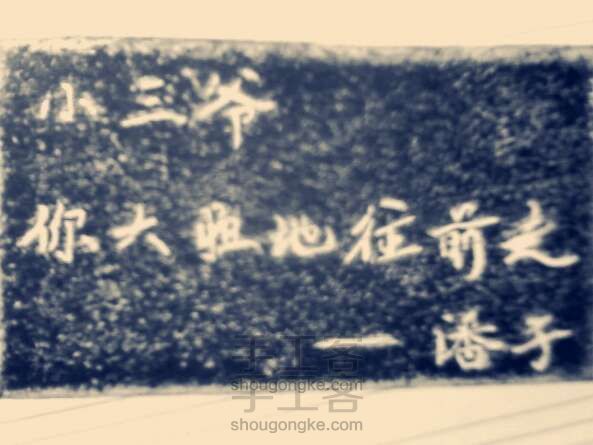 小三爷
你大胆地往前走
— 潘子
手工客
shougongke.com
手工客
shougongke.com